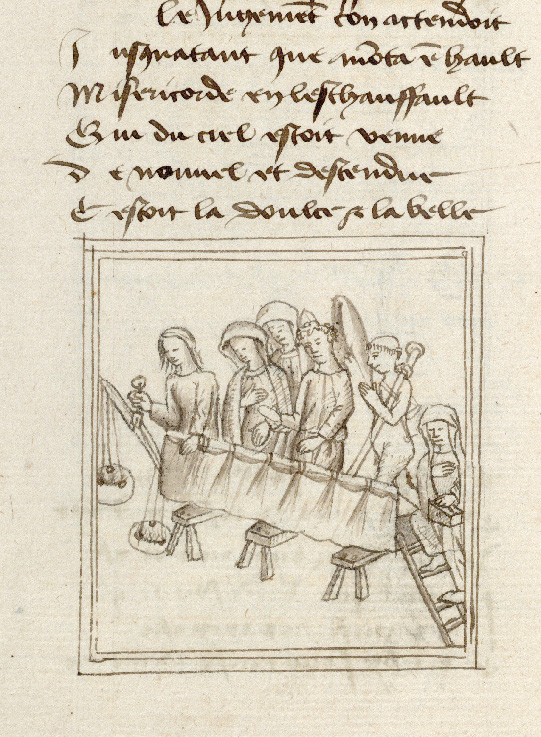 Le Jugement con actendoit
Jusquatant que mōta ē hault
Misericorde en leschauffault
Qui du ciel estoit venue
De nouuel et descendue
Cestoit la doulce et la belle